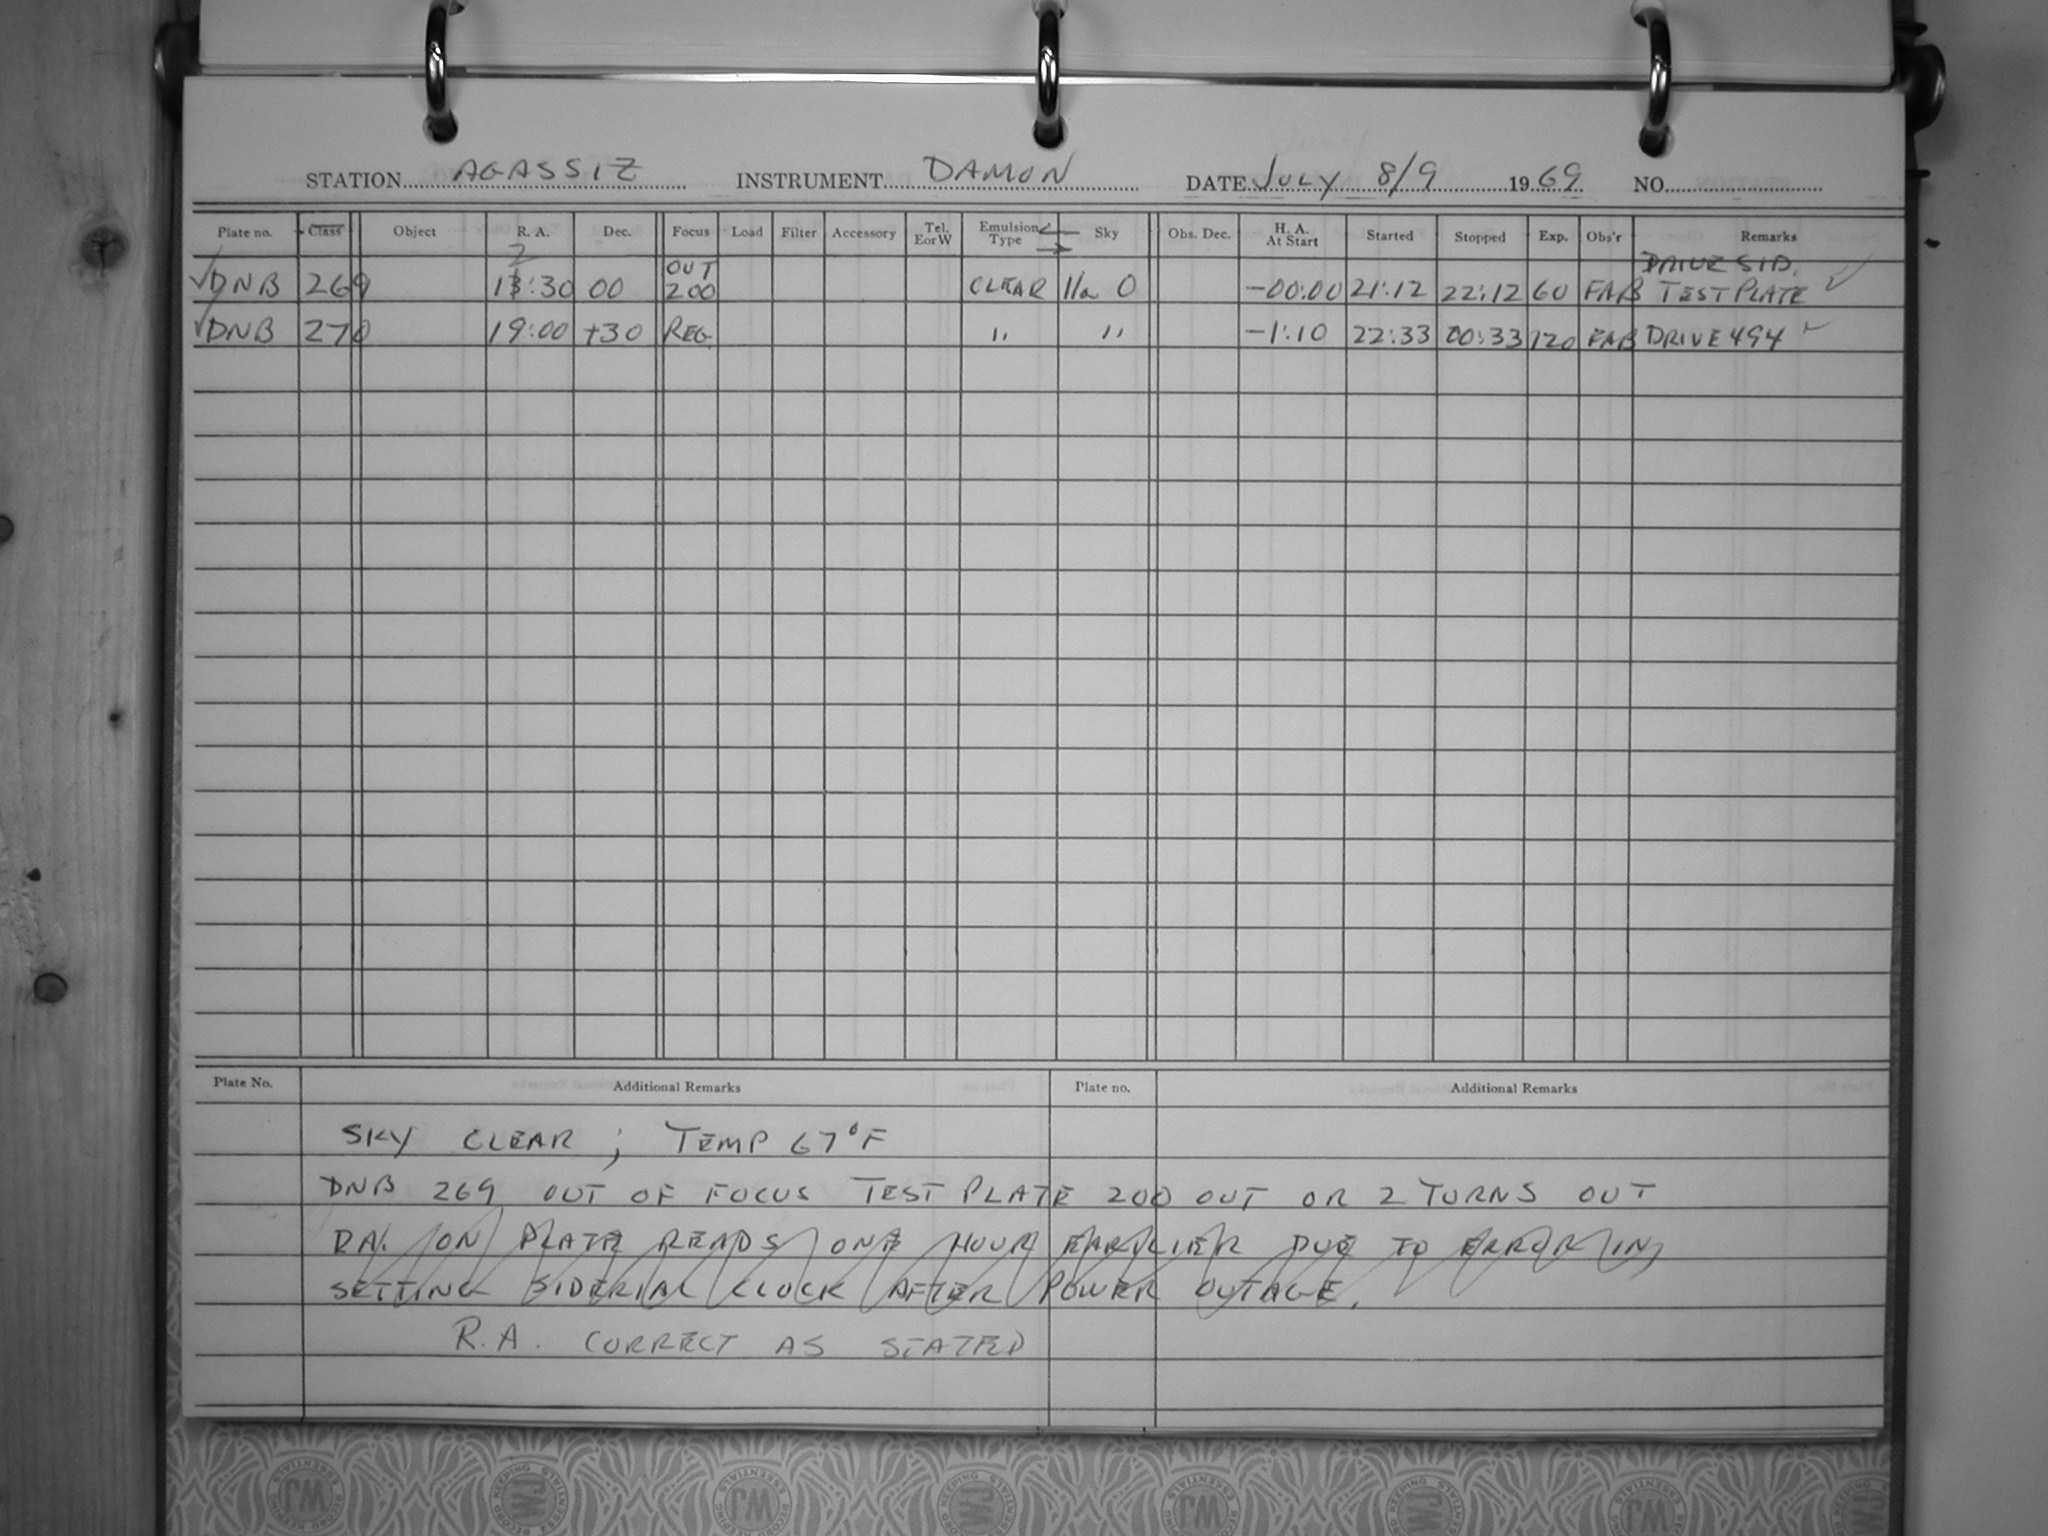 STATION AGASSIZ INSTRUMENT DAMON DATE JULY 8/9 1969 NO.
Plate no. Class Object R. A. Dec. Focus Load Filter Accessory Tel. E or W Emulsion Type Sky Obs. Dec. H. A. At Start Started Stopped Exp. Obs'r Remarks
2 OUT DRIVE SID.
DNB 269 13:30 00 200 CLEAR IIa O -00:00 21:12 22:12 60 FAB TEST PLATE
DNB 270 19:00 +30 REG. " " -1:10 22:33 00:33 120 FAB DRIVE 494
Plate No. Additional Remarks Plate no. Additional Remarks
SKY CLEAR ; TEMP 67°F
DNB 269 OUT OF FOCUS TEST PLATE 200 OUT OR 2 TURNS OUT
RA. ON PLATE READS ONE HOUR EARLIER DUE TO ERROR IN
SETTING SIDERIAL CLOCK AFTER POWER OUTAGE.
R.A. CORRECT AS STATED
RECORD KEEPING ESSENTIALS